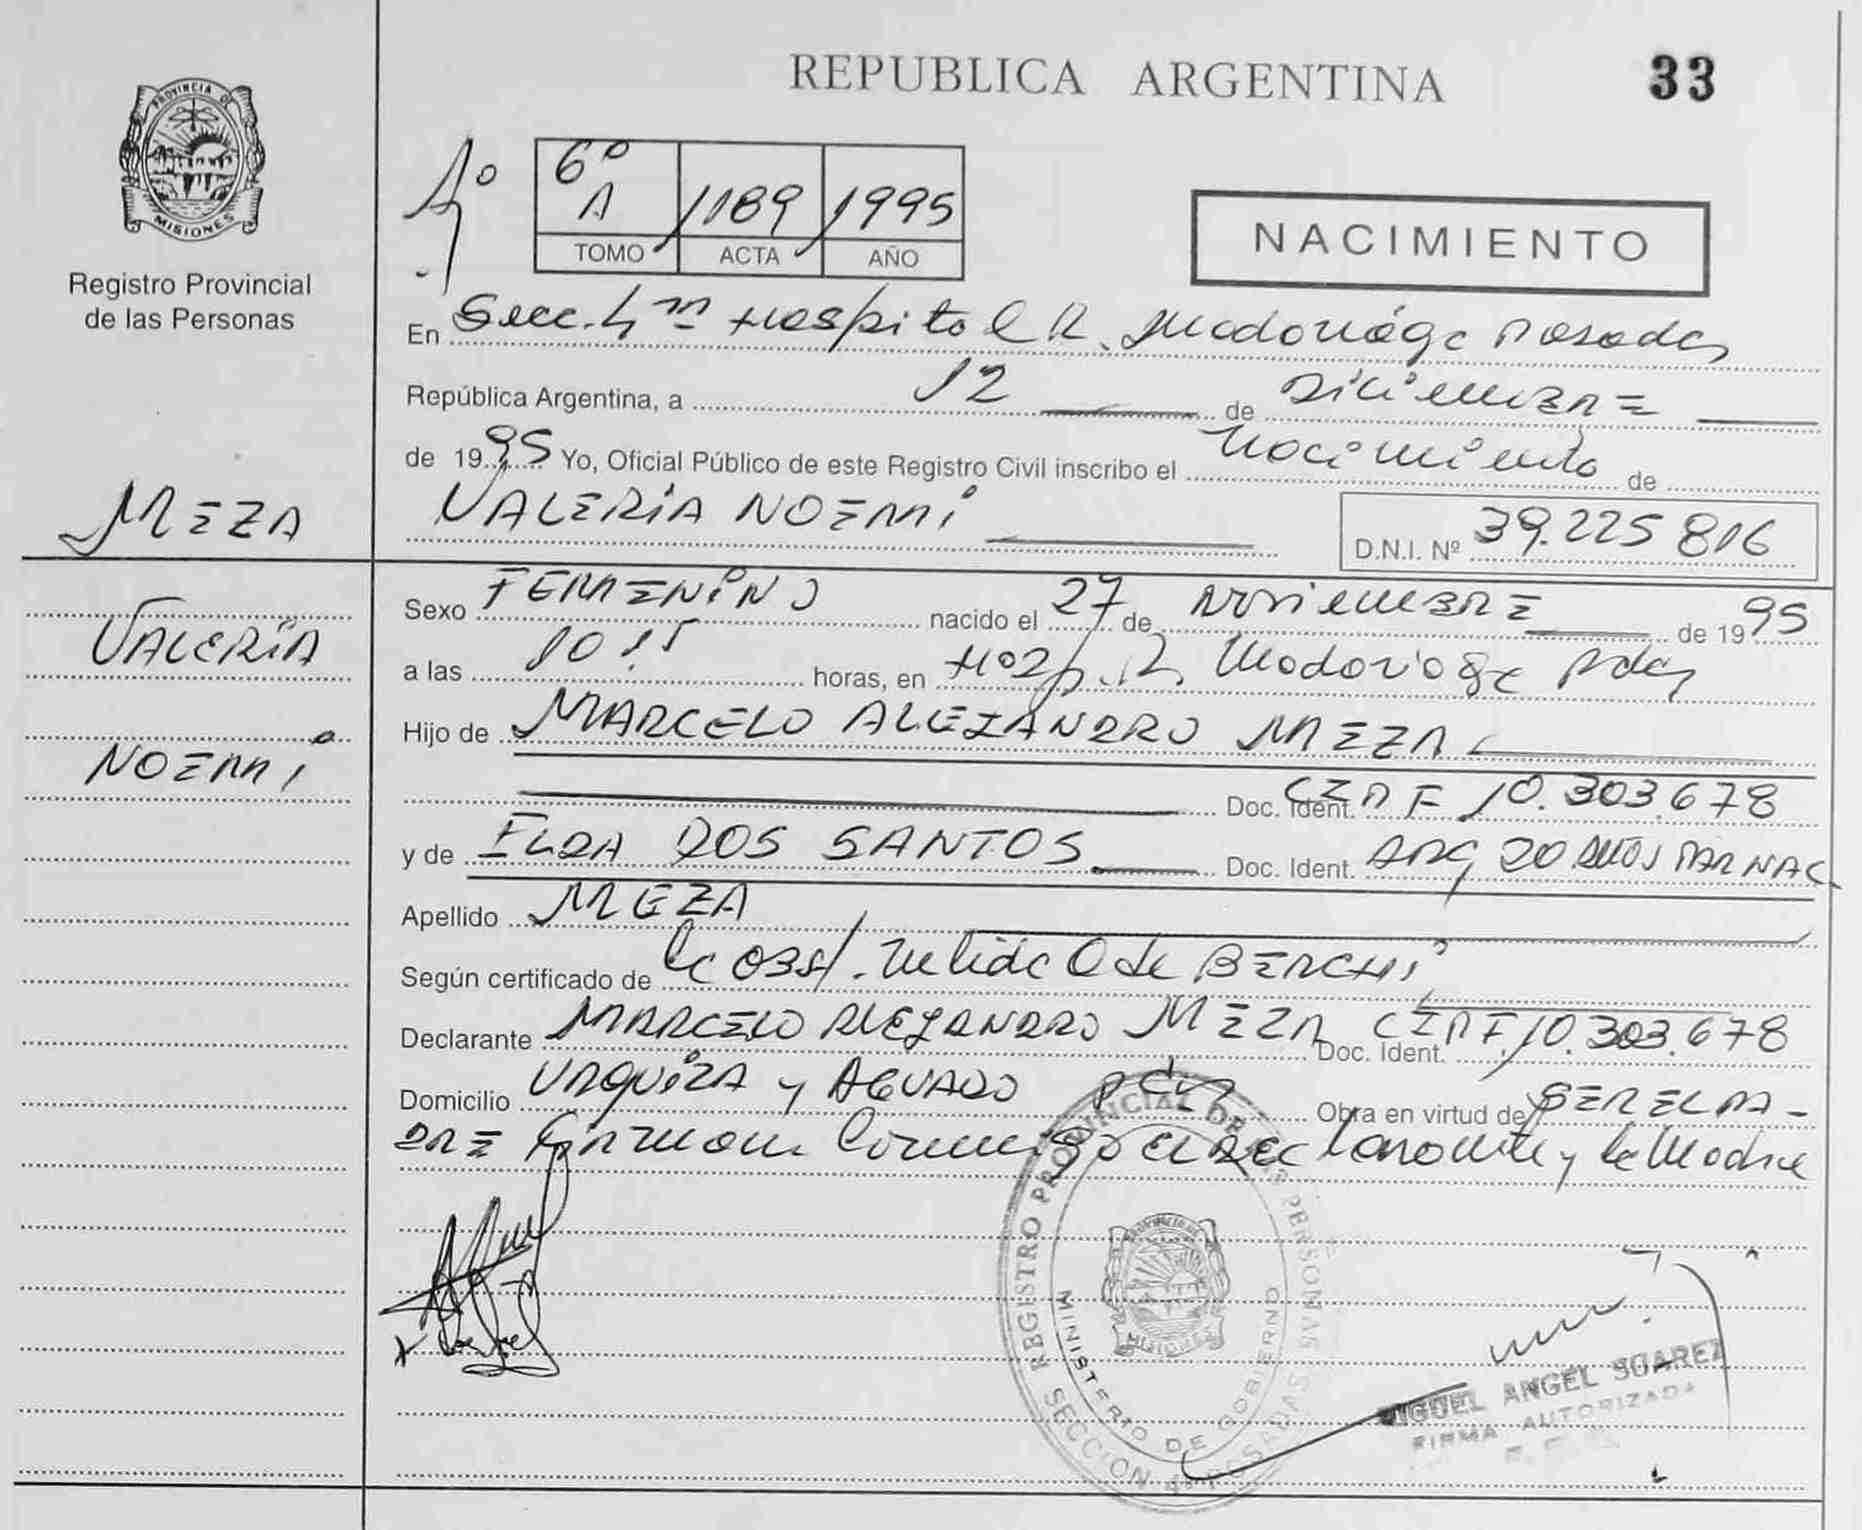 REPUBLICA ARGENTINA 33
PROVINCIA DE
MISIONES
Registro Provincial
de las Personas
6º
A 1189 1995
TOMO ACTA AÑO
NACIMIENTO
En Secc. 4ta Hospital R. Madariaga Posadas
República Argentina, a 12 de Diciembre
de 1995 Yo, Oficial Público de este Registro Civil inscribo el nacimiento de
MEZA
VALERIA NOEMI
D.N.I. Nº 39.225 816
VALERIA
NOEMI
Sexo FEMENINO nacido el 27 de Noviembre de 1995
a las 10 15 horas, en Hosp. R. Madariaga Pdas
Hijo de MARCELO ALEJANDRO MEZA
Doc. Ident. CIPF 10.303.678
y de ELDA DOS SANTOS Doc. Ident. ARG 20 AÑOS PAR NAC.
Apellido MEZA
Según certificado de la Obst. Nelida O de BERCHI
Declarante MARCELO ALEJANDRO MEZA Doc. Ident. CIPF 10.303.678
Domicilio URQUIZA y AGUADO Pdas Obra en virtud de SER EL PA-
DRE Firman Conmigo el declarante y la Madre
REGISTRO PROVINCIAL DE LAS PERSONAS
MINISTERIO DE GOBIERNO
SECCION 4ª POSADAS
PROVINCIA DE
MISIONES
MIGUEL ANGEL SUAREZ
FIRMA AUTORIZADA